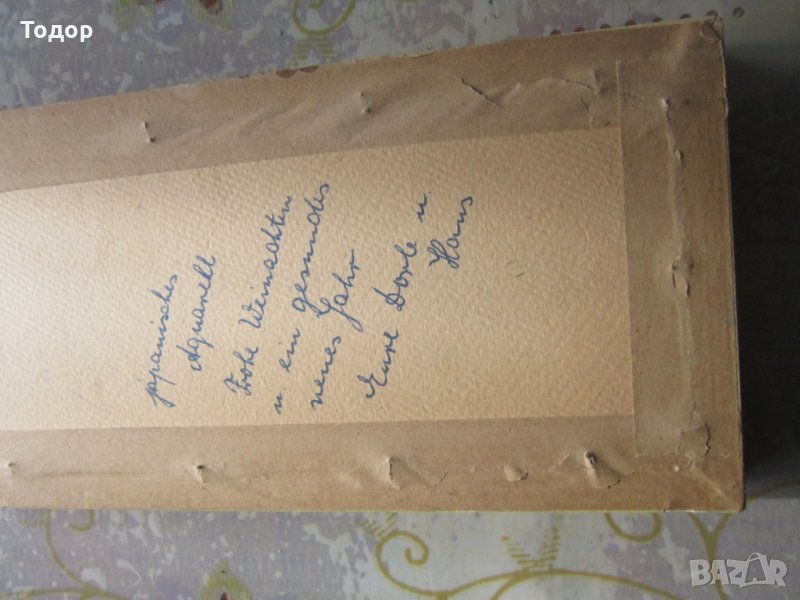 Тодор
japanisches
Aquarell
Frohe Weinachten
u. ein gesundes
neues Jahr
Eure Dorle u.
Hans
BAZAR